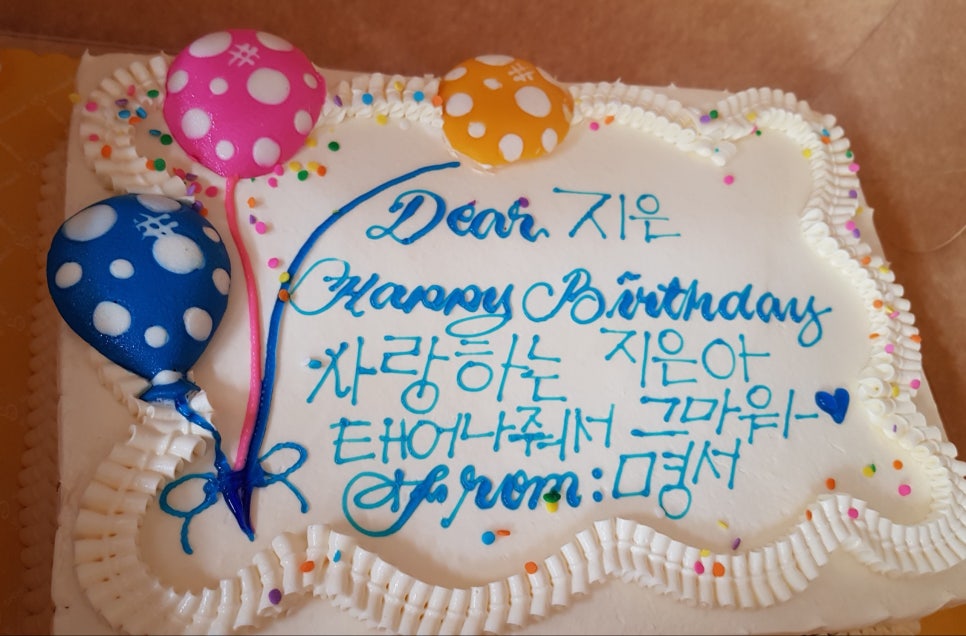 Dear 지은
Happy Birthday
사랑하는 지은아
태어나줘서 고마워~
From: 명서